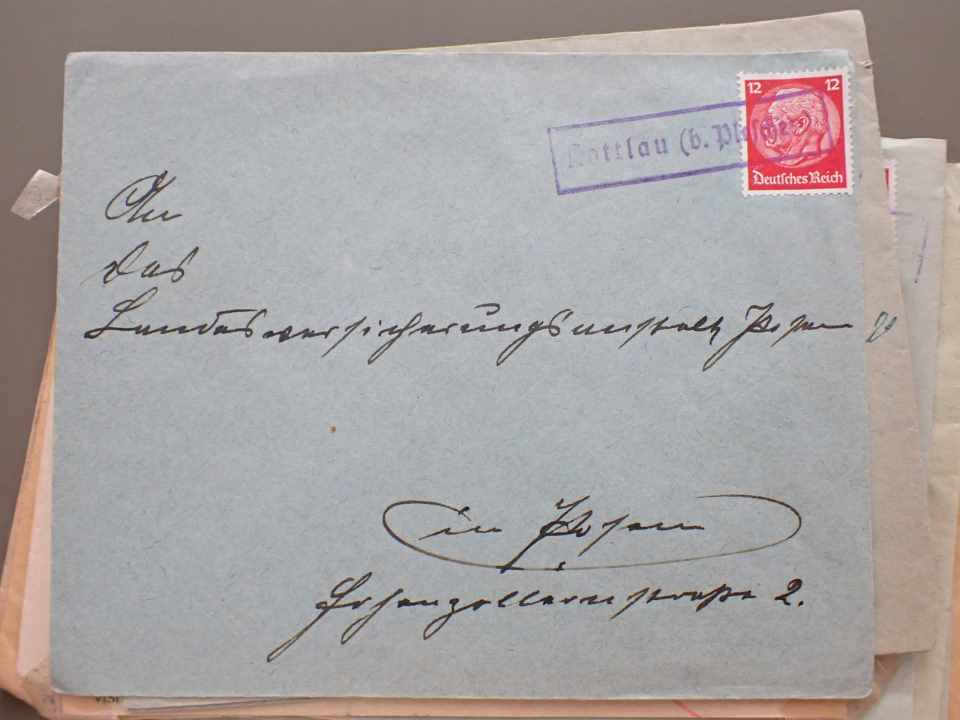 12 12
Deutsches Reich
Kottlau (b. Pleschen)
An
das
Landesversicherungsanstalt Posen
in Posen
Hohenzollernstraße 2.